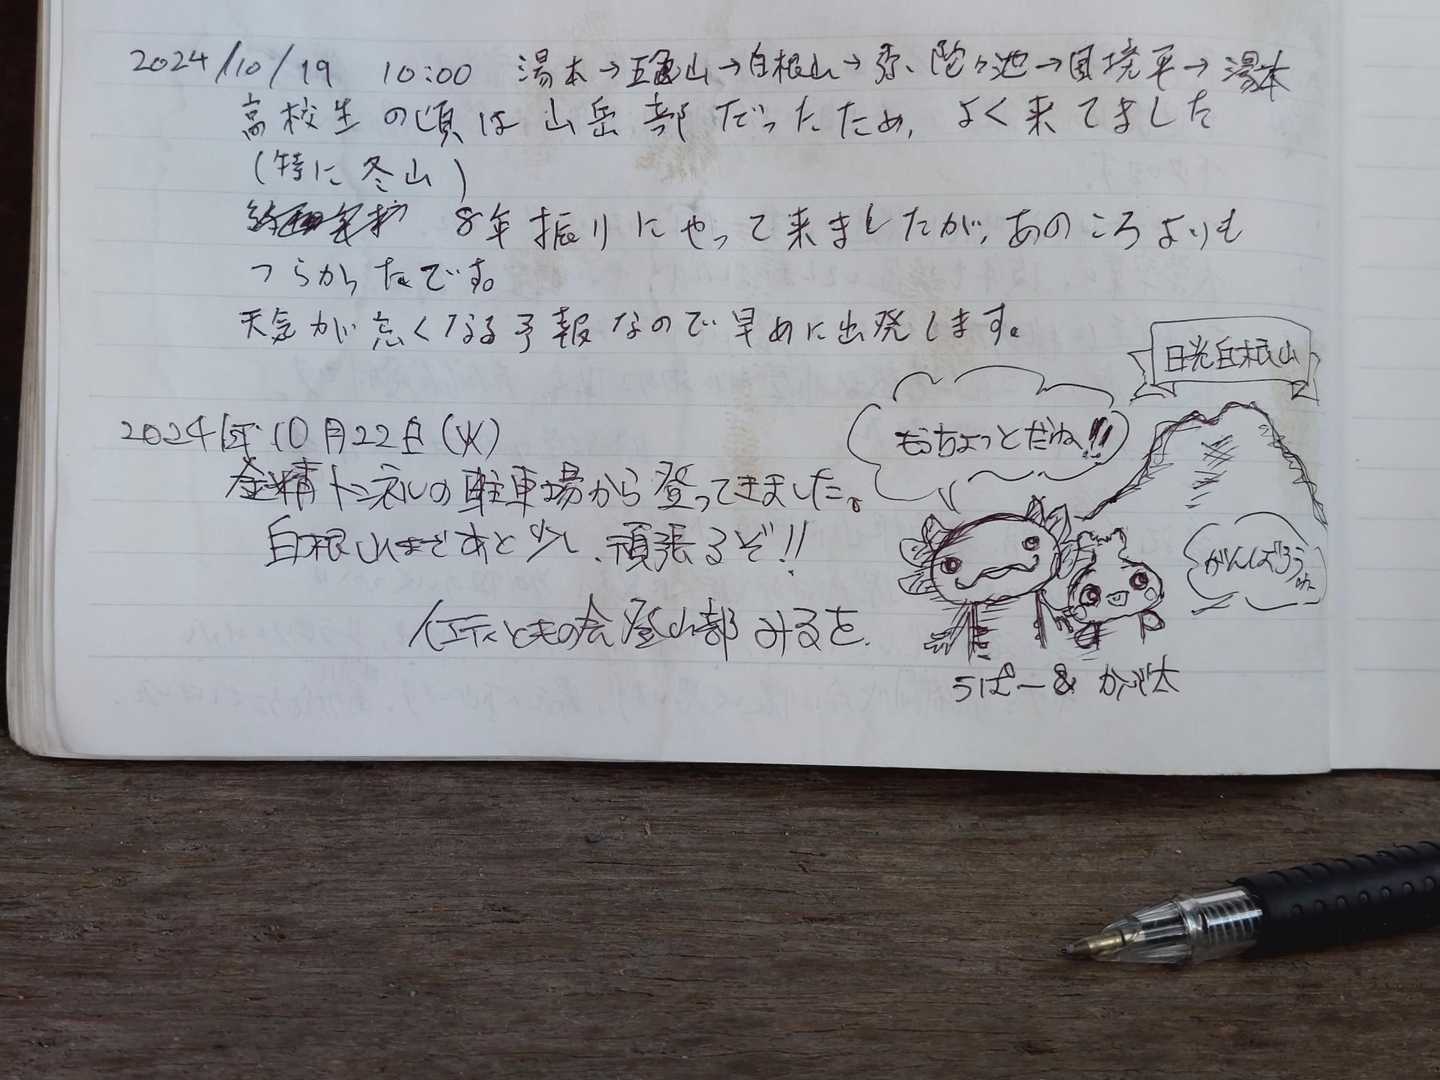 2024/10/19 10:00 湯本→五色山→白根山→弥陀ヶ池→国境平→湯本
高校生の頃は山岳部だったため、よく来てました
(特に冬山)
8年振りにやって来ましたが、あのころよりも
つらかったです。
天気が悪くなる予報なので早めに出発します。
日光白根山
もうちょっとだね!!
2024年10月22日(火)
金精トンネルの駐車場から登ってきました。
白根山まであと少し、頑張るぞ!!
がんばろうね
ともの会登山部 みるを
うぱー& かぶ太